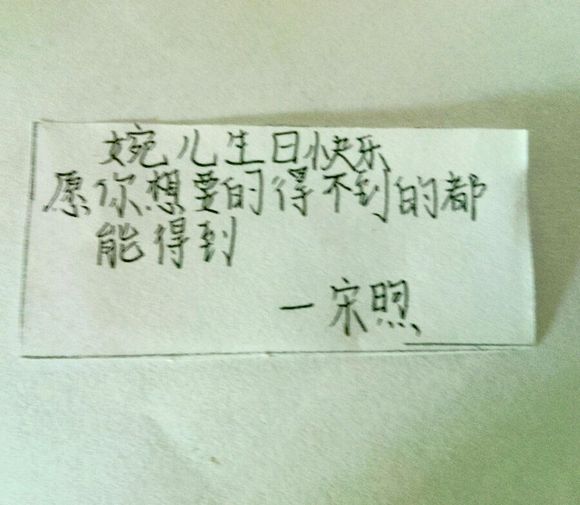 婉儿生日快乐
愿你想要的得不到的都
能得到
一宋煦